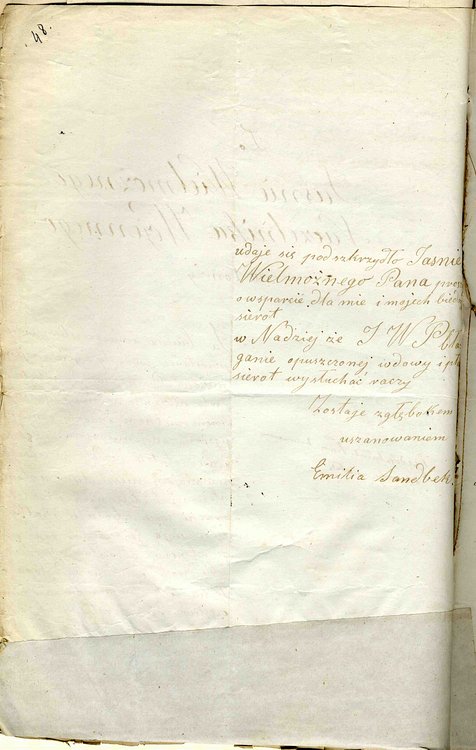 48.
udaje sis podszkrzydło Jasnie
Wielmożnego Pana
owsparcie dla mie i mojch
sierot
w Nadzieji że J W P
ganie opuszczonej wdowy i
sierot wysłuchać raczy
Zostaje zgłębokiem
uszanowaniem
Emilia Sandbek